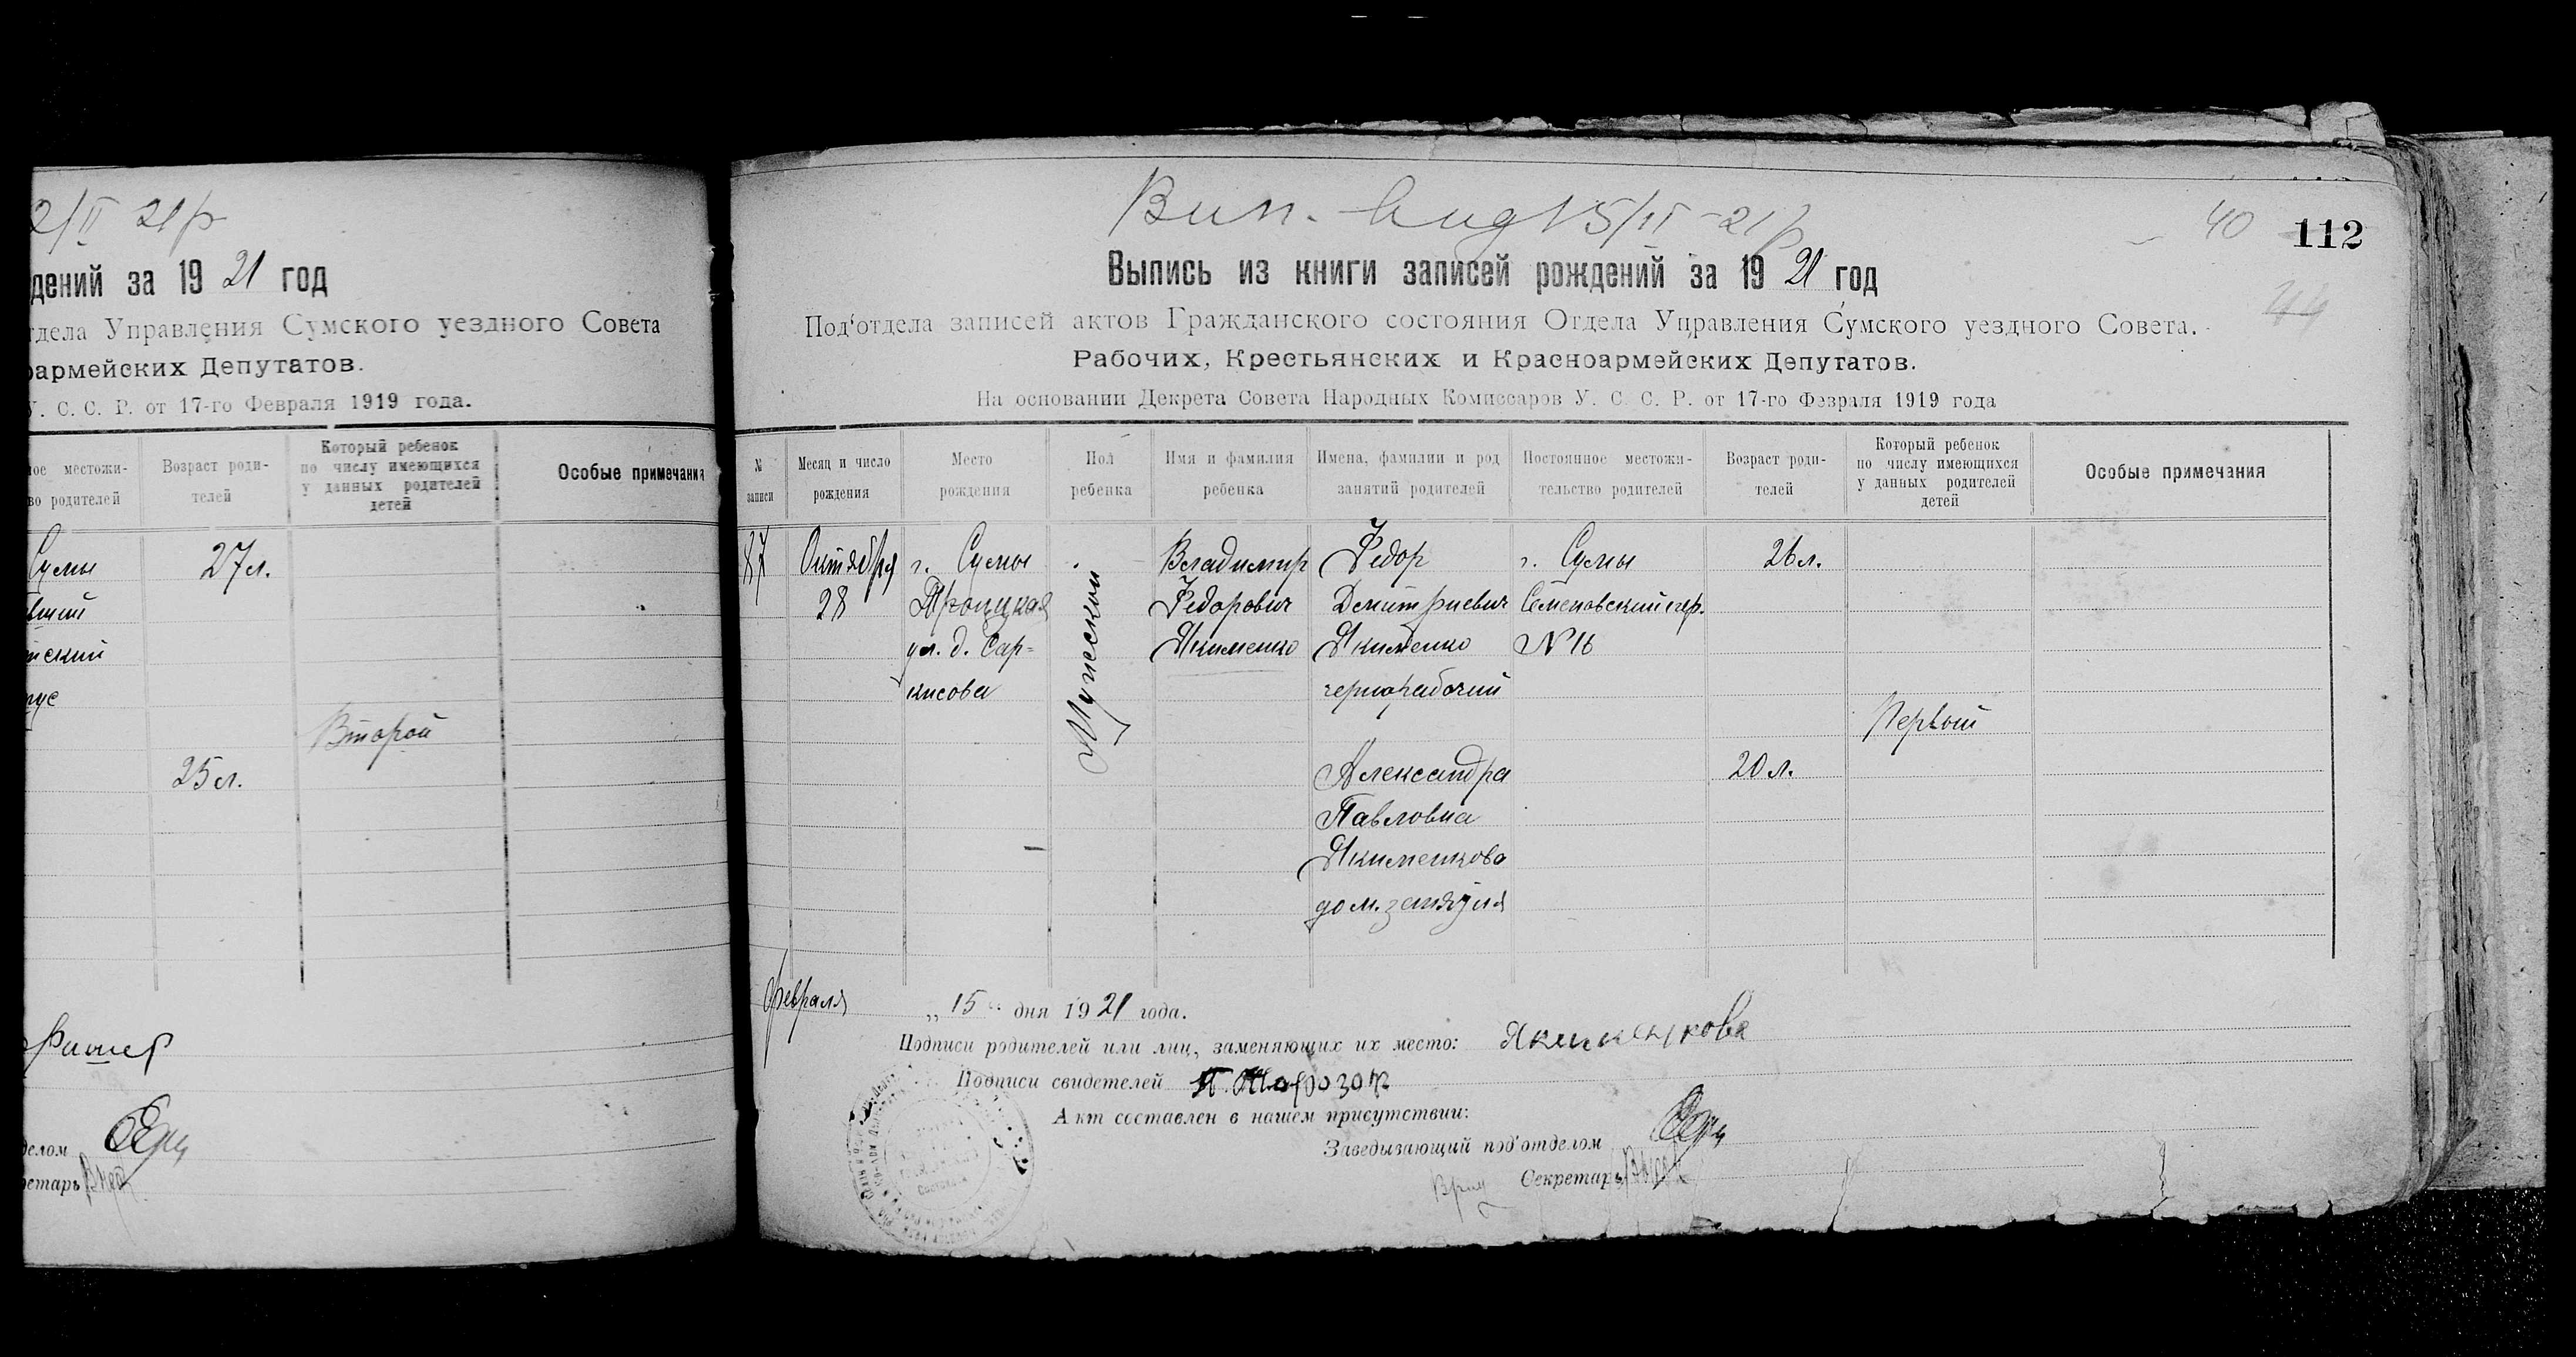 2/II 21р
дений за 1921 год
тдела Управления Сумского уездного Совета
оармейских Депутатов.
У. С. С. Р. от 17-го Февраля 1919 года.
ное местожи-
во родителей
Возраст роди-
телей
Который ребенок
по числу имеющихся
у данных родителей
детей
Особые примечания
Сумы
27 л.
Второй
25 л.
делом
ретарь
Вип. 15/II-21р
40
112
44
Выпись из книги записей рождений за 1921 год
Под'отдела записей актов Гражданского состояния Отдела Управления Сумского уездного Совета.
Рабочих, Крестьянских и Красноармейских Депутатов.
На основании Декрета Совета Народных Комиссаров У. С. С. Р. от 17-го Февраля 1919 года
№
записи
Месяц и число
рождения
Место
рождения
Пол
ребенка
Имя и фамилия
ребенка
Имена, фамилии и род
занятий родителей
Постоянное местожи-
тельство родителей
Возраст роди-
телей
Который ребенок
по числу имеющихся
у данных родителей
детей
Особые примечания
87
Октября
28
г. Сумы
Троицкая
ул. д. Сар-
кисова
Мужской
Владимир
Федорович
Якименко
Федор
Дмитриевич
Якименко
чернорабочий
Александра
Павловна
Якименкова
дом. занятия
г. Сумы
Семеновский пер.
№ 16
26 л.
20 л.
Первый
Февраля „15“ дня 1921 года.
Подписи родителей или лиц, заменяющих их место: Якименкова
Подписи свидетелей
Акт составлен в нашем присутствии:
Заведывающий под'отделом
Секретарь